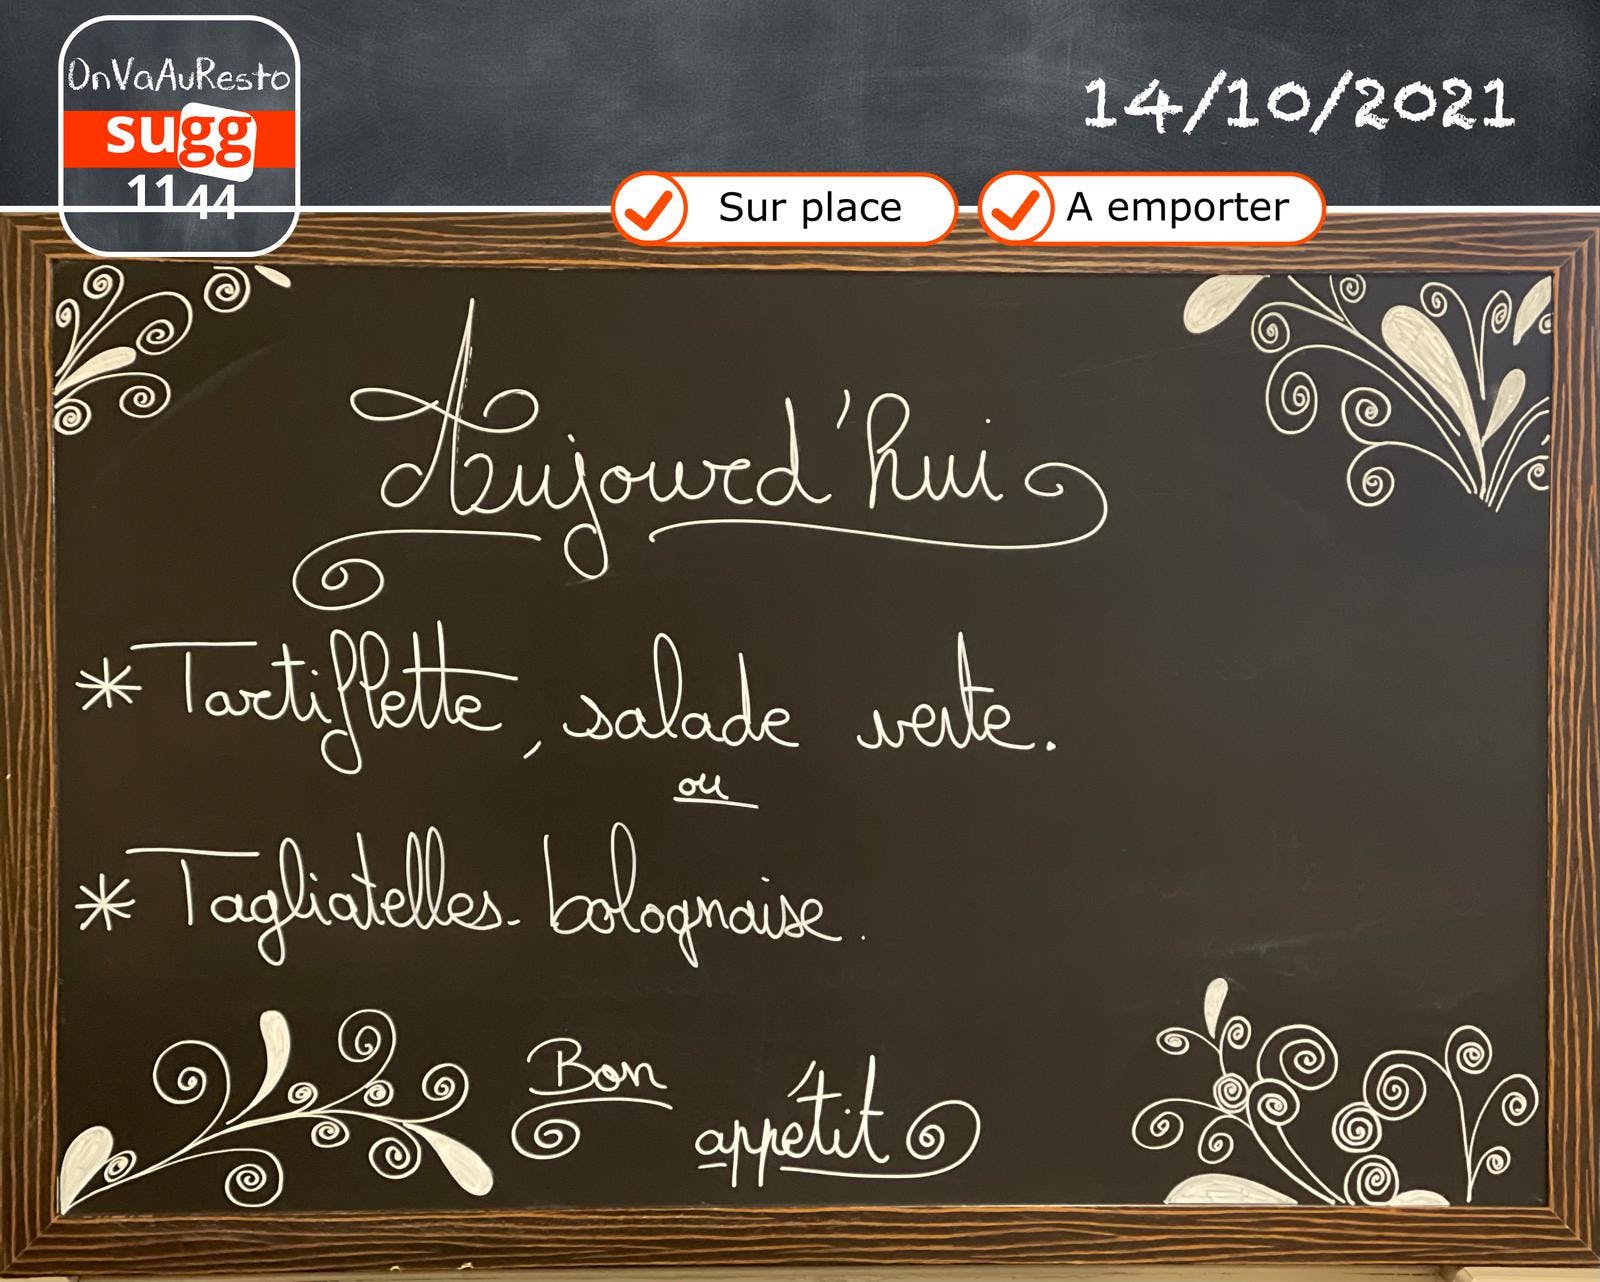 OnVaAuResto
sugg
1144
14/10/2021
Sur place
A emporter
Aujourd'hui
* Tartiflette, salade verte.
ou
* Tagliatelles bolognaise.
Bon
appétit